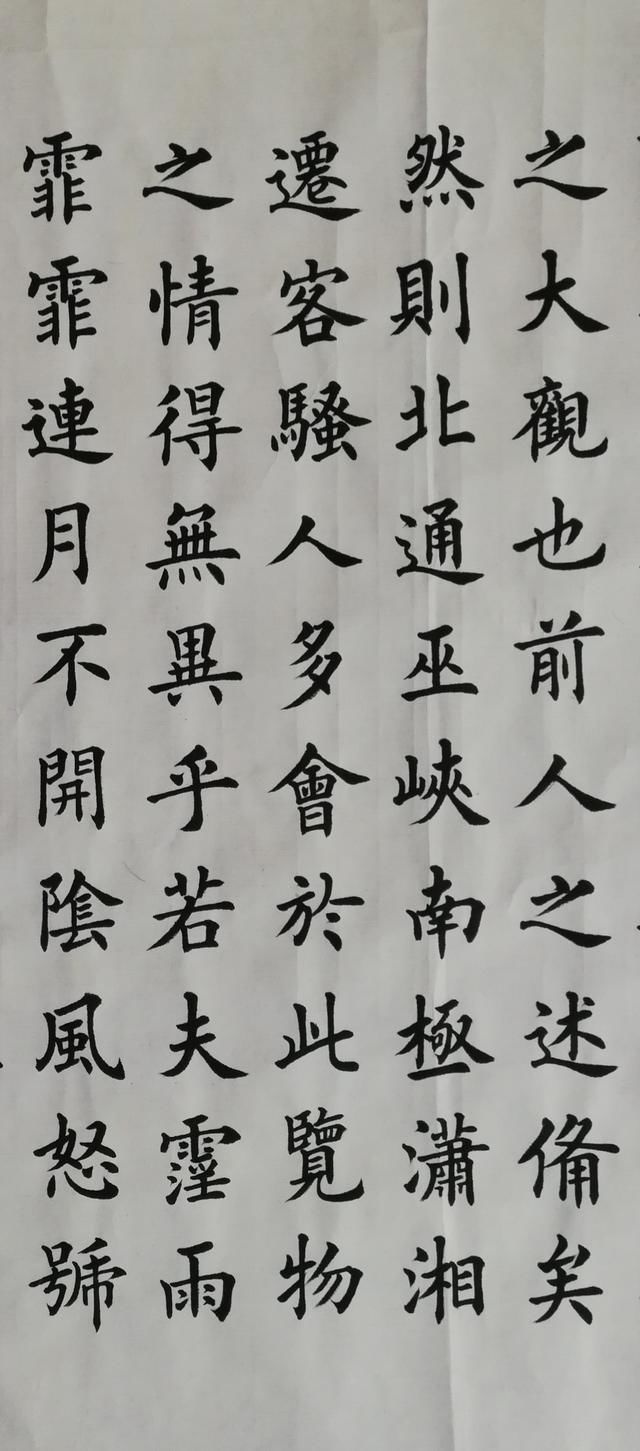 之大觀也前人之述備矣
然則北通巫峽南極瀟湘
遷客騷人多會於此覽物
之情得無異乎若夫霪雨
霏霏連月不開陰風怒號